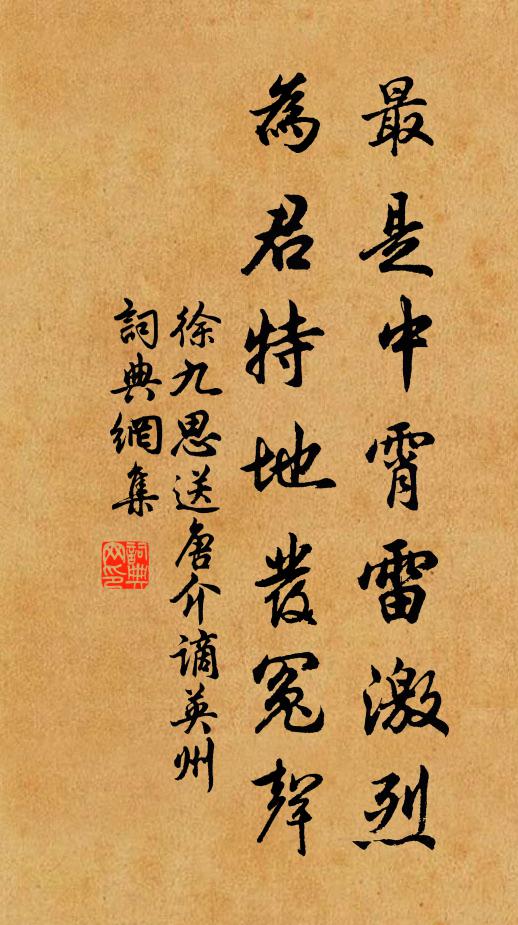 最是中霄雷激烈
為君特地發冤聲
徐九思送唐介謫英州
詞典網集
詞典网印